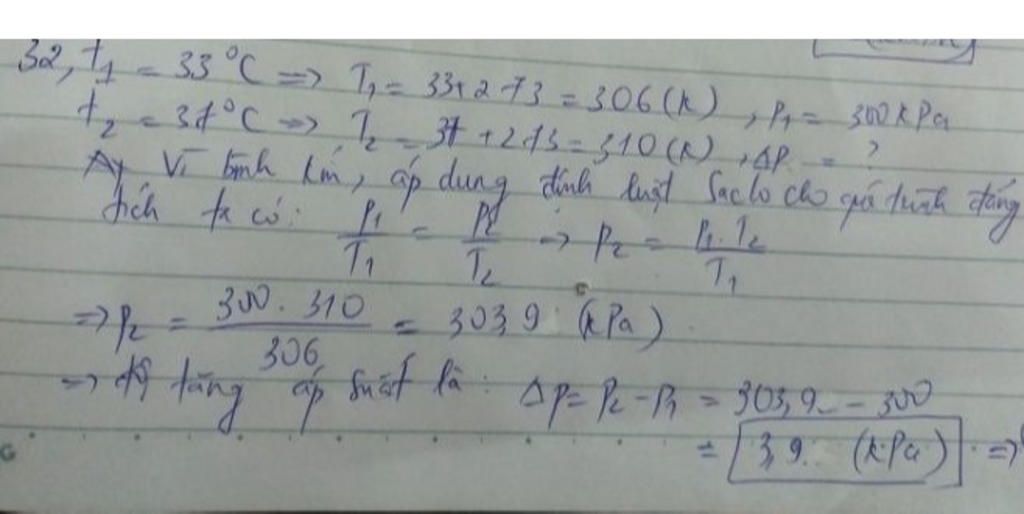 32, t₁ = 33°C => T₁ = 33+273 = 306 (K), P₁ = 300 kPa
t₂ = 37°C => T₂ = 37 + 273 = 310 (K), ΔP = ?
Vì bình kín, áp dụng định luật Saclo cho quá trình đẳng
tích ta có: P₁/T₁ = P₂/T₂ => P₂ = P₁.T₂/T₁
=> P₂ = 300.310/306 = 303,9 (kPa)
=> độ tăng áp suất là: ΔP = P₂ - P₁ = 303,9.. - 300
= 3,9.. (kPa) =>